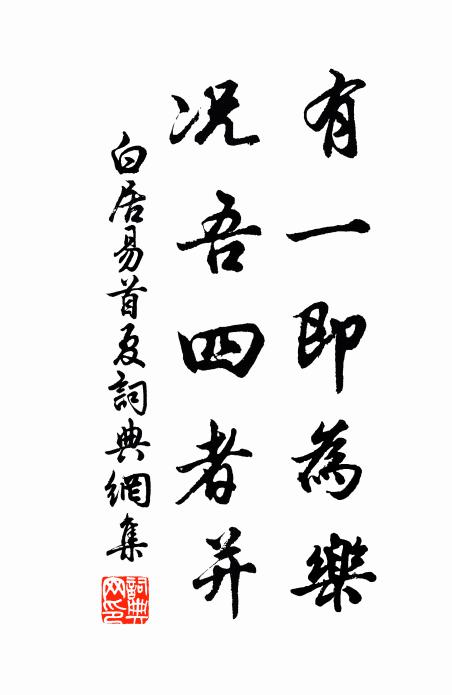 有一即為樂
况吾四者并
白居易首夏詞典網集
詞典網印